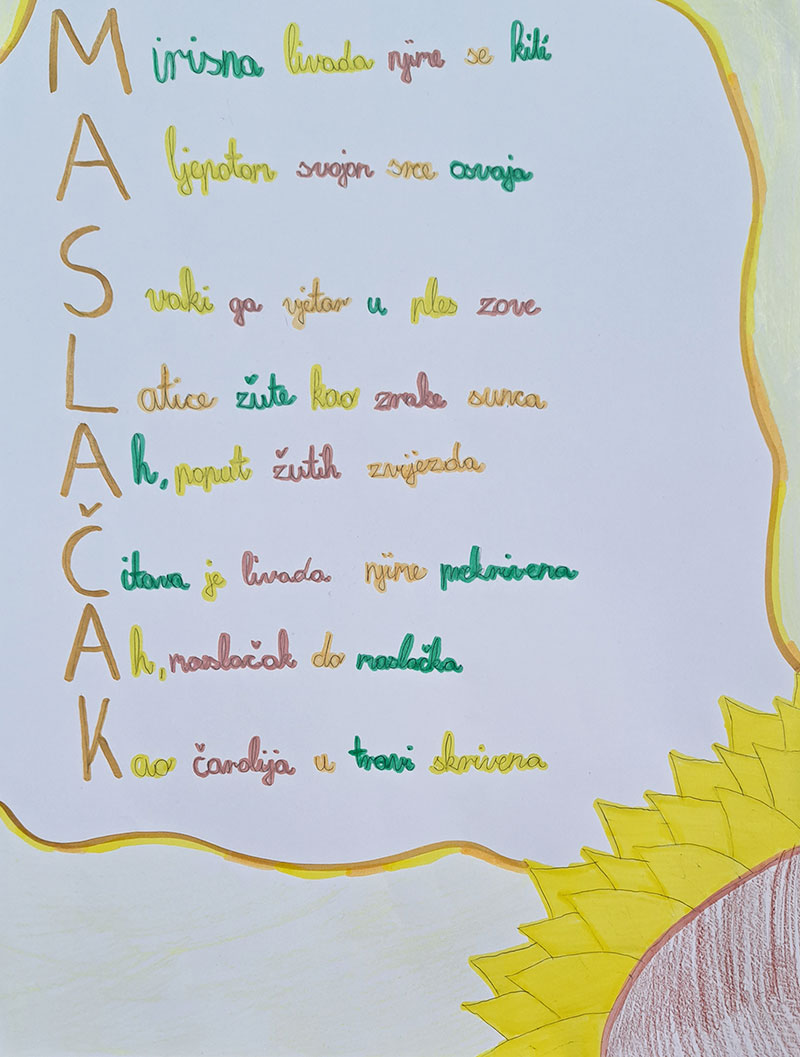 Mirisna livada njime se kiti
A ljepotom svojom srce osvaja
Svaki ga vjetar u ples zove
Latice žute kao zrake sunca
Ah, poput žutih zvijezda
Čitava je livada njime prekrivena
Ah, maslačak do maslačka
Kao čarolija u travi skrivena